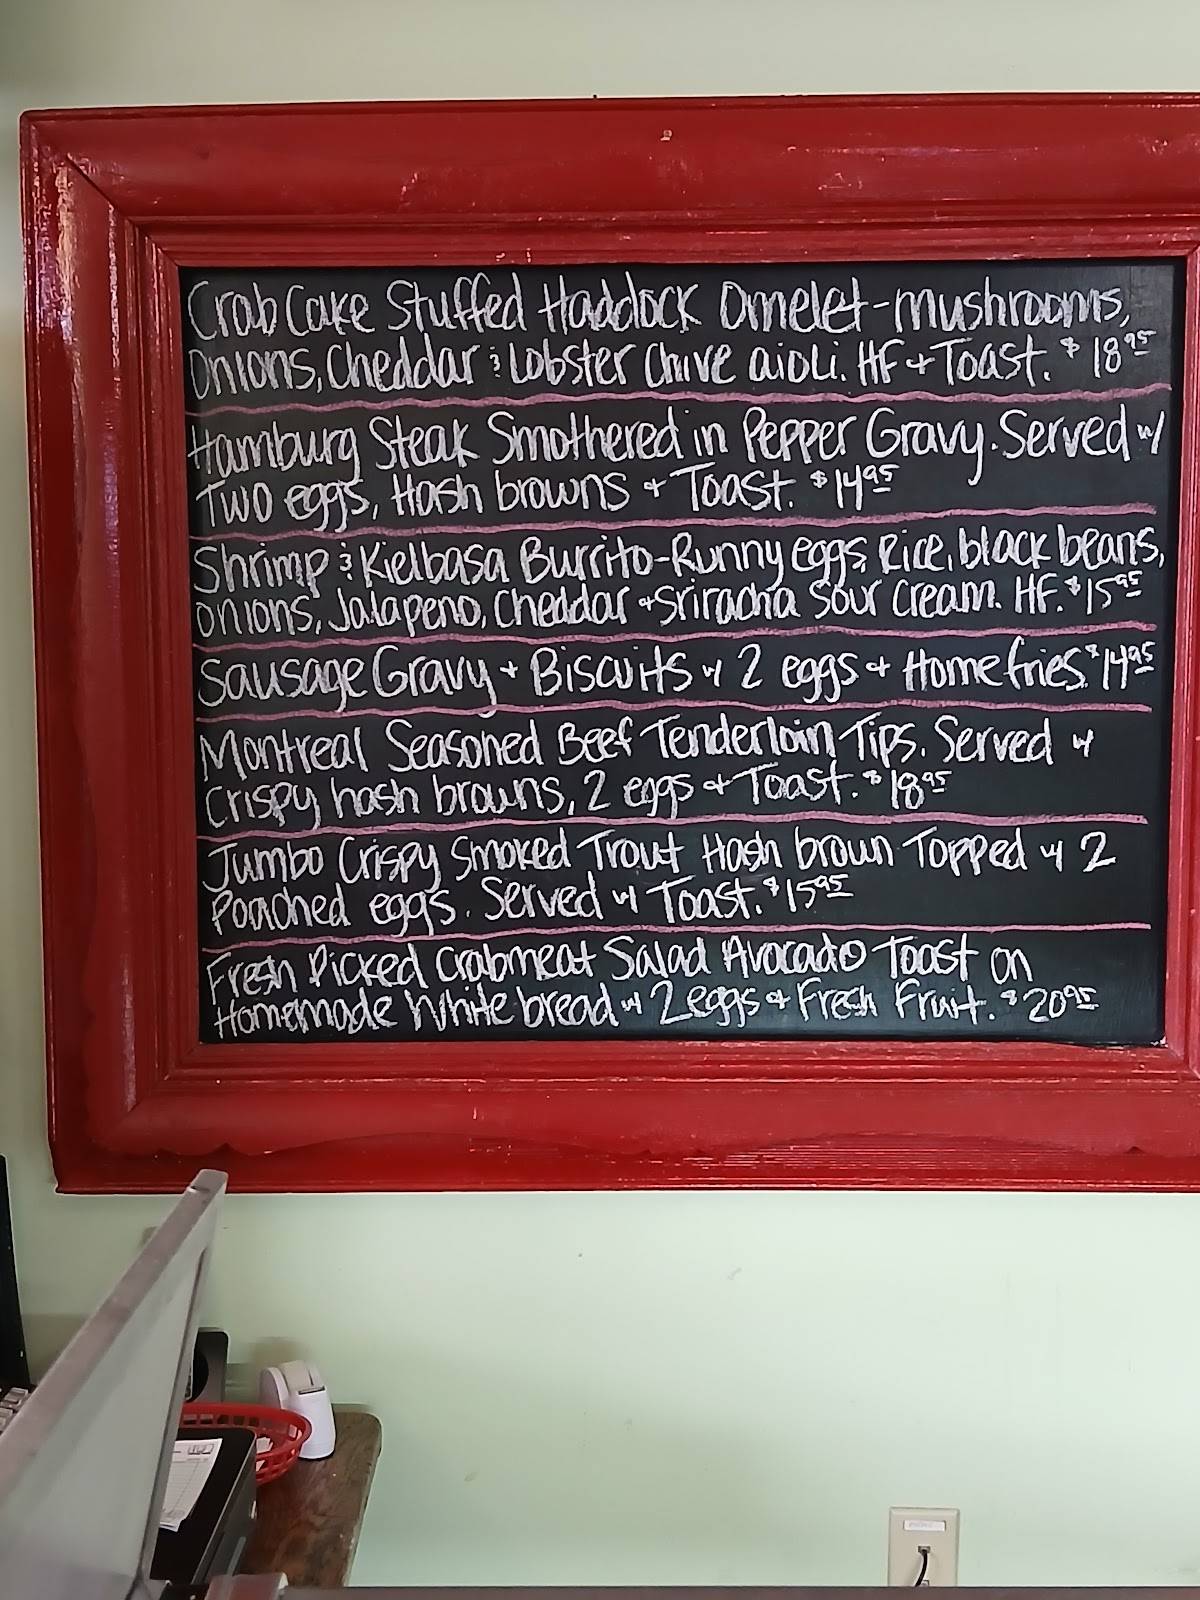 Crab Cake Stuffed Haddock Omelet-mushrooms,
Onions, Cheddar & Lobster Chive aioli. HF + Toast. $18.95
Hamburg Steak Smothered in Pepper Gravy. Served w/
Two eggs, Hash browns + Toast. $14.95
Shrimp & Kielbasa Burrito-Runny eggs, Rice, black beans,
onions, Jalapeno, Cheddar + Sriracha Sour Cream. HF. $15.95
Sausage Gravy + Biscuits w/ 2 eggs + Homefries $14.95
Montreal Seasoned Beef Tenderloin Tips. Served w/
Crispy hash browns, 2 eggs + Toast. $18.95
Jumbo Crispy Smoked Trout Hash brown Topped w/ 2
Poached eggs. Served w/ Toast. $15.95
Fresh Picked Crabmeat Salad Avocado Toast on
Homemade White bread w/ 2 eggs + Fresh Fruit. $20.95